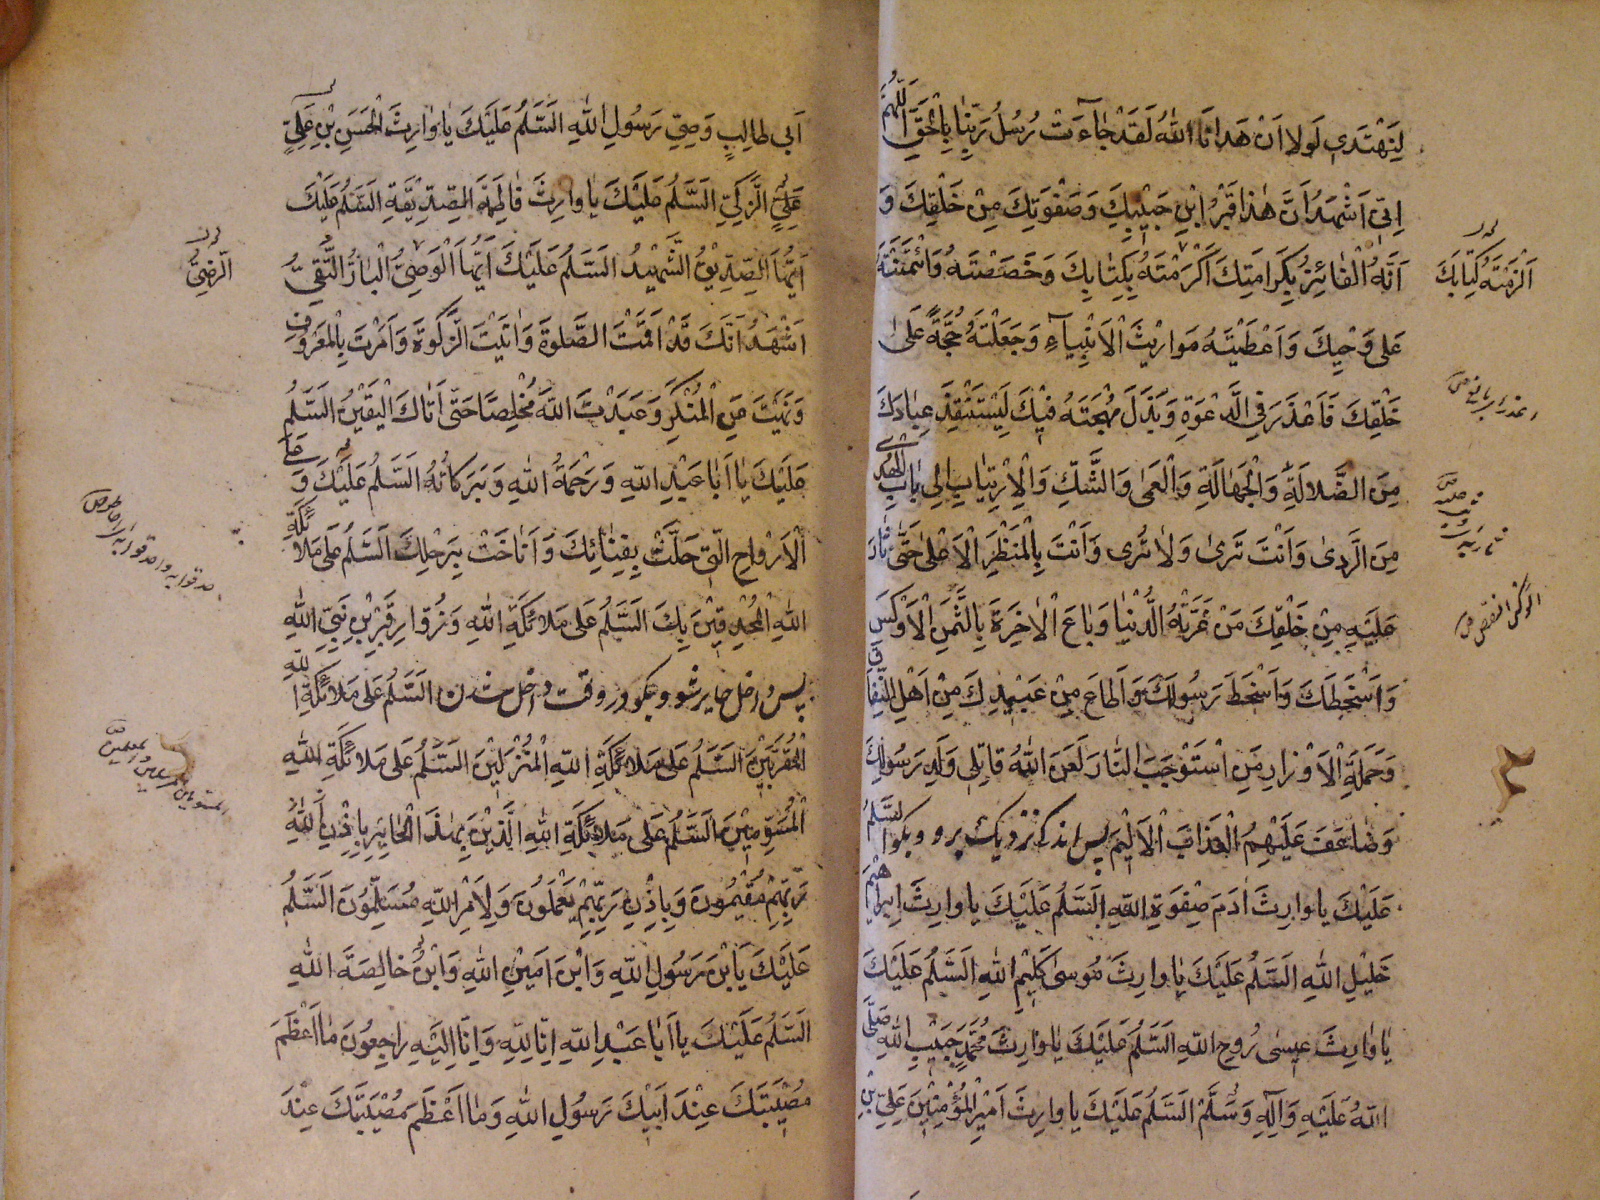 لِنَهْتَدِىَ لَوْلا اَنْ هَدانَا اللهُ لَقَدْ جاءَتْ رُسُلُ رَبِّنا بِالْحَقِّ اَللّهُمَّ
اِنّى اَشْهَدُ اَنَّ هٰذا قَبْرُ ابْنِ حَبيْبِكَ وَصَفْوَتِكَ مِنْ خَلْقِكَ وَ
اَنَّهُ الْفائِزُ بِكَرامَتِكَ اَكْرَمْتَهُ بِكِتابِكَ وَخَصَصْتَهُ وَائْتَمَنْتَهُ
عَلى وَحْيِكَ وَاَعْطَيْتَهُ مَوارِيْثَ الْاَنْبِياءِ وَجَعَلْتَهُ حُجَّةً عَلى
خَلْقِكَ فَاَعْذَرَ فِى الدَّعْوَةِ وَبَذَلَ مُهْجَتَهُ فيْكَ لِيَسْتَنْقِذَ عِبادَكَ
مِنَ الضَّلالَةِ وَالْجَهالَةِ وَالْعَمى وَالشَّكِّ وَالْاِرْتِيابِ اِلى بابِ الْهُدى
مِنَ الرَّدى وَاَنْتَ تَرى وَلا تُرى وَاَنْتَ بِالْمَنْظَرِ الْاَعْلى حَتّى ثارَ
عَلَيْهِ مِنْ خَلْقِكَ مَنْ غَرَّتْهُ الدُّنْيا وَباعَ الْاخِرَةَ بِالثَّمَنِ الْاَوْكَسِ
وَاَسْخَطَكَ وَاَسْخَطَ رَسُولَكَ وَاَطاعَ مِنْ عَبيْدِكَ مِنْ اَهْلِ النِّفاقِ
وَحَمَلَةِ الْاَوْزارِ مَنِ اسْتَوْجَبَ النّارَ لَعَنَ اللهُ قاتِلى وَلَدِ رَسُولِكَ
وَضاعَفَ عَلَيْهِمُ الْعَذابَ الْاَلِيْمَ پس اندكى نزديك برو وبكو اَلسَّلامُ
عَلَيْكَ يا وارِثَ ادَمَ صِفْوَةِ اللهِ اَلسَّلامُ عَلَيْكَ يا وارِثَ اِبْراهِيْمَ
خَليْلِ اللهِ اَلسَّلامُ عَلَيْكَ يا وارِثَ مُوسى كَليْمِ اللهِ اَلسَّلامُ عَلَيْكَ
يا وارِثَ عيسى رُوحِ اللهِ اَلسَّلامُ عَلَيْكَ يا وارِثَ مُحَمَّدٍ حَبيْبِ اللهِ صَلَّى
اللهُ عَلَيْهِ وَالِهِ وَسَلَّمَ اَلسَّلامُ عَلَيْكَ يا وارِثَ اَميْرِ الْمُؤْمِنيْنَ عَلِىِّ بْنِ
اَلْزَمْتَهُ كِتابَكَ
اَبى طالِبٍ وَصِىِّ رَسُولِ اللهِ اَلسَّلامُ عَلَيْكَ يا وارِثَ الْحَسَنِ بْنِ عَلِىٍّ
عَلِىٍّ الزَّكِىِّ اَلسَّلامُ عَلَيْكَ يا وارِثَ فاطِمَةَ الصِّدّيْقَةِ اَلسَّلامُ عَلَيْكَ
اَيُّهَا الصِّدّيْقُ الشَّهيْدُ اَلسَّلامُ عَلَيْكَ اَيُّهَا الْوَصِىُّ الْبارُّ التَّقِىُّ
اَشْهَدُ اَنَّكَ قَدْ اَقَمْتَ الصَّلوةَ وَاتَيْتَ الزَّكوةَ وَاَمَرْتَ بِالْمَعْرُوفِ
وَنَهَيْتَ عَنِ الْمُنْكَرِ وَعَبَدْتَ اللهَ مُخْلِصًا حَتّى اَتاكَ الْيَقيْنُ اَلسَّلامُ
عَلَيْكَ يا اَبا عَبْدِ اللهِ وَرَحْمَةُ اللهِ وَبَرَكاتُهُ اَلسَّلامُ عَلَيْكَ وَ عَلَى
الْاَرْواحِ الَّتى حَلَّتْ بِفِنائِكَ وَاَناخَتْ بِرَحْلِكَ اَلسَّلامُ عَلى مَلائِكَةِ
اللهِ الْمُحْدِقيْنَ بِكَ اَلسَّلامُ عَلى مَلائِكَةِ اللهِ وَزُوّارِ قَبْرِ بْنِ نَبِىِّ اللهِ
پس داخل حاير شو وبكو در وقت داخل شدن اَلسَّلامُ عَلى مَلائِكَةِ اللهِ
الْمُقَرَّبيْنَ اَلسَّلامُ عَلى مَلائِكَةِ اللهِ الْمُنْزَليْنَ اَلسَّلامُ عَلى مَلائِكَةِ اللهِ
الْمُسَوِّميْنَ اَلسَّلامُ عَلى مَلائِكَةِ اللهِ الَّذيْنَ بِهذَا الْحائِرِ بِاِذْنِ اللهِ
رَبِّهِمْ مُقيْمُونَ وَبِاِذْنِ رَبِّهِمْ يَعْمَلُونَ وَلِاَمْرِ اللهِ مُسَلِّمُونَ اَلسَّلامُ
عَلَيْكَ يَابْنَ رَسُولِ اللهِ وَابْنَ اَميْنِ اللهِ وَابْنَ خالِصَةِ اللهِ
اَلسَّلامُ عَلَيْكَ يا اَبا عَبْدِ اللهِ اِنّا لِلّهِ وَاِنّا اِلَيْهِ راجِعُونَ ما اَعْظَمَ
مُصيْبَتَكَ عِنْدَ اَبيْكَ رَسُولِ اللهِ وَما اَعْظَمَ مُصيْبَتَكَ عِنْدَ
الرَّضِىُّ